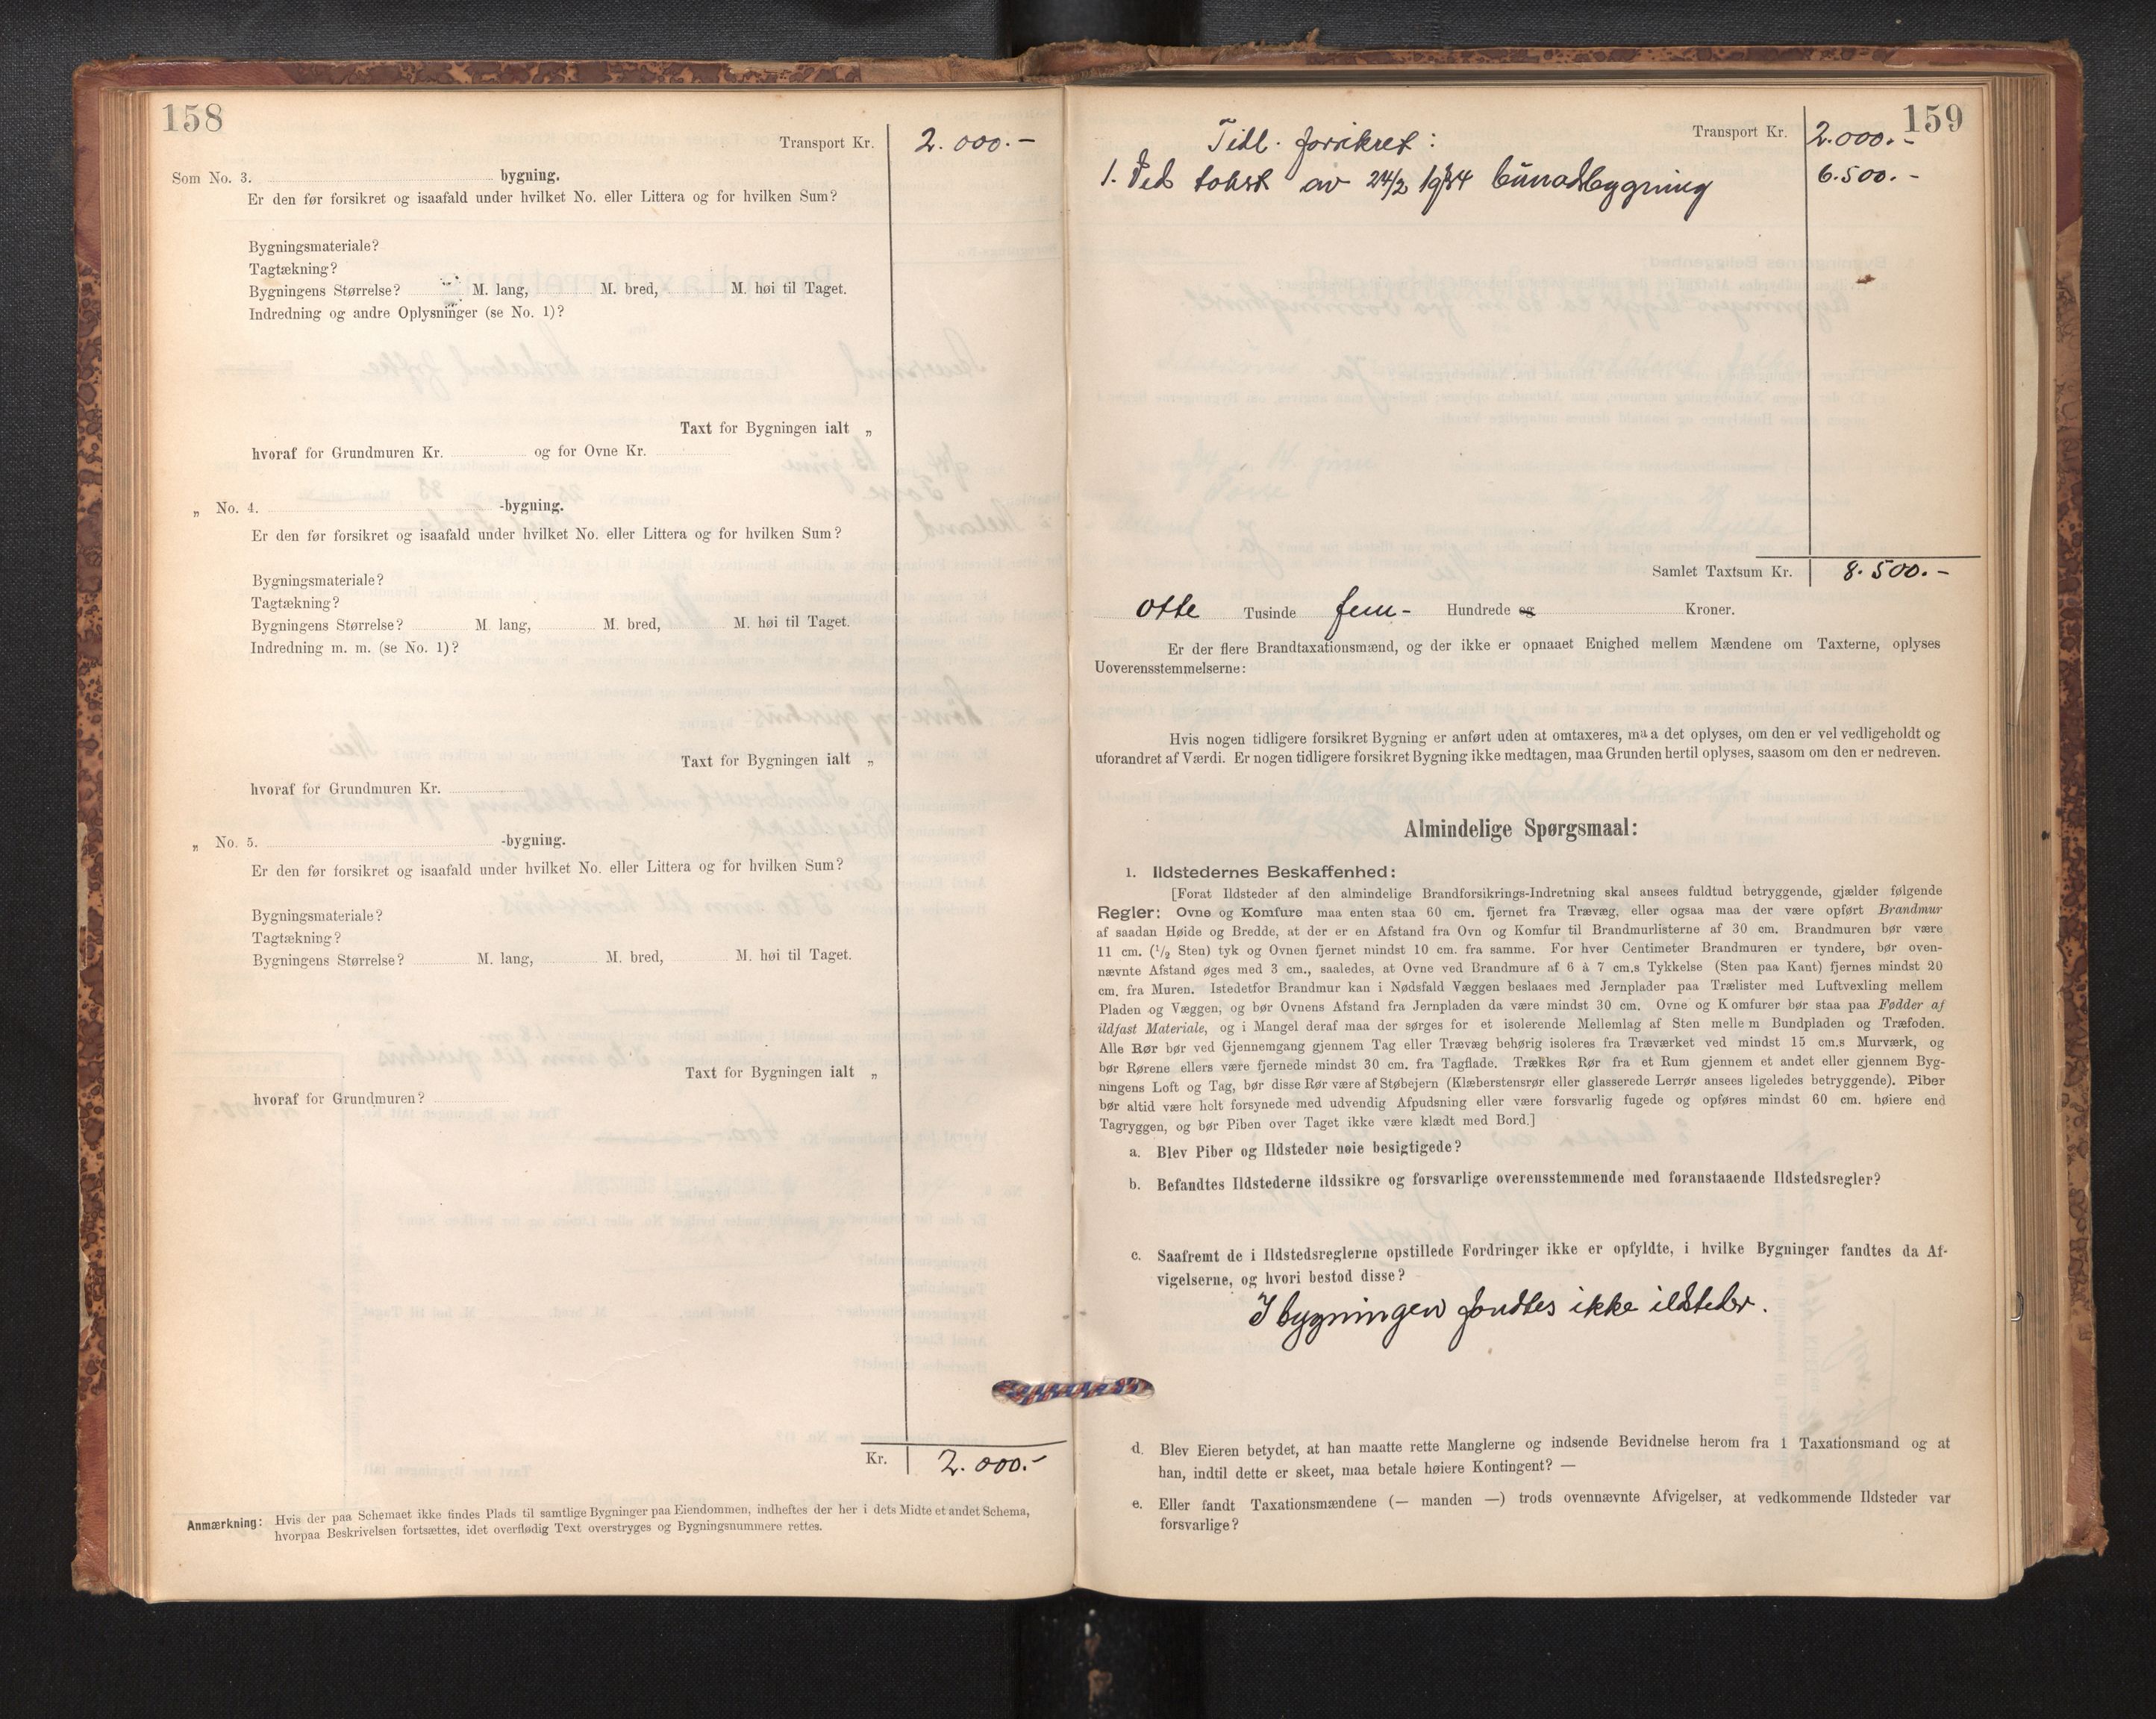 158
Transport Kr. 2.000.-
Som No. 3. bygning.
Er den før forsikret og isaafald under hvilket No. eller Littera og for hvilken Sum?
Bygningsmateriale?
Tagtækning?
Bygningens Størrelse? M. lang, M. bred, M. høi til Taget.
Indredning og andre Oplysninger (se No. 1)?
Taxt for Bygningen ialt „
hvoraf for Grundmuren Kr. og for Ovne Kr.
„ No. 4. -bygning.
Er den før forsikret og isaafald under hvilket No. eller Littera og for hvilken Sum?
Bygningsmateriale?
Tagtækning?
Bygningens Størrelse? M lang, M. bred, M. høi til Taget.
Indredning m. m. (se No. 1)?
Taxt for Bygningen ialt „
hvoraf for Grundmuren Kr.
„ No. 5. -bygning.
Er den før forsikret og isaafald under hvilket No. eller Littera og for hvilken Sum?
Bygningsmateriale?
Tagtækning?
Bygningens Størrelse? M. lang, M. bred, M. høi til Taget.
Taxt for Bygningen ialt „
hvoraf for Grundmuren?
Kr. 2.000.-
Anmærkning: Hvis der paa Schemaet ikke findes Plads til samtlige Bygninger paa Eiendommen, indheftes der her i dets Midte et andet Schema,
hvorpaa Beskrivelsen fortsættes, idet overflødig Text overstryges og Bygningsnummere rettes.
159
Tidl. forsikret: Transport Kr. 2.000.-
1. Ved takst av 24/2 1934 bunadsbygning 6.500.-
Samlet Taxtsum Kr. 8.500.-
Otte Tusinde fem- Hundrede og Kroner.
Er der flere Brandtaxationsmænd, og der ikke er opnaaet Enighed mellem Mændene om Taxterne, oplyses
Uoverensstemmelserne:
Hvis nogen tidligere forsikret Bygning er anført uden at omtaxeres, maa det oplyses, om den er vel vedligeholdt og
uforandret af Værdi. Er nogen tidligere forsikret Bygning ikke medtagen, maa Grunden hertil oplyses, saasom om den er nedreven.
Almindelige Spørgsmaal:
1. Ildstedernes Beskaffenhed:
[Forat Ildsteder af den almindelige Brandforsikrings-Indretning skal ansees fuldtud betryggende, gjælder følgende
Regler: Ovne og Komfure maa enten staa 60 cm. fjernet fra Trævæg, eller ogsaa maa der være opført Brandmur
af saadan Høide og Bredde, at der er en Afstand fra Ovn og Komfur til Brandmurlisterne af 30 cm. Brandmuren bør være
11 cm. (1/2 Sten) tyk og Ovnen fjernet mindst 10 cm. fra samme. For hver Centimeter Brandmuren er tyndere, bør oven-
nævnte Afstand øges med 3 cm., saaledes, at Ovne ved Brandmure af 6 à 7 cm.s Tykkelse (Sten paa Kant) fjernes mindst 20
cm. fra Muren. Istedetfor Brandmur kan i Nødsfald Væggen beslaaes med Jernplader paa Trælister med Luftvexling mellem
Pladen og Væggen, og bør Ovnens Afstand fra Jernpladen da være mindst 30 cm. Ovne og Komfurer bør staa paa Fødder af
ildfast Materiale, og i Mangel deraf maa der sørges for et isolerende Mellemlag af Sten mellem Bundpladen og Træfoden.
Alle Rør bør ved Gjennemgang gjennem Tag eller Trævæg behørig isoleres fra Træværket ved mindst 15 cm.s Murværk, og
bør Rørene ellers være fjernede mindst 30 cm. fra Tagflade. Trækkes Rør fra et Rum gjennem et andet eller gjennem Byg-
ningens Loft og Tag, bør disse Rør være af Støbejern (Klæberstensrør eller glasserede Lerrør ansees ligeledes betryggende). Piber
bør altid være holt forsynede med udvendig Afpudsning eller være forsvarlig fugede og opføres mindst 60 cm. høiere end
Tagryggen, og bør Piben over Taget ikke være klædt med Bord.]
a. Blev Piber og Ildsteder nøie besigtigede?
b. Befandtes Ildstederne ildssikre og forsvarlige overensstemmende med foranstaaende Ildstedsregler?
c. Saafremt de i Ildstedsreglerne opstillede Fordringer ikke er opfyldte, i hvilke Bygninger fandtes da Af-
vigelserne, og hvori bestod disse?
I bygningen fandtes ikke ildsteder.
d. Blev Eieren betydet, at han maatte rette Manglerne og indsende Bevidnelse herom fra 1 Taxationsmand og at
han, indtil dette er skeet, maa betale høiere Kontingent? —
e. Eller fandt Taxationsmændene (— manden —) trods ovennævnte Afvigelser, at vedkommende Ildsteder var
forsvarlige?